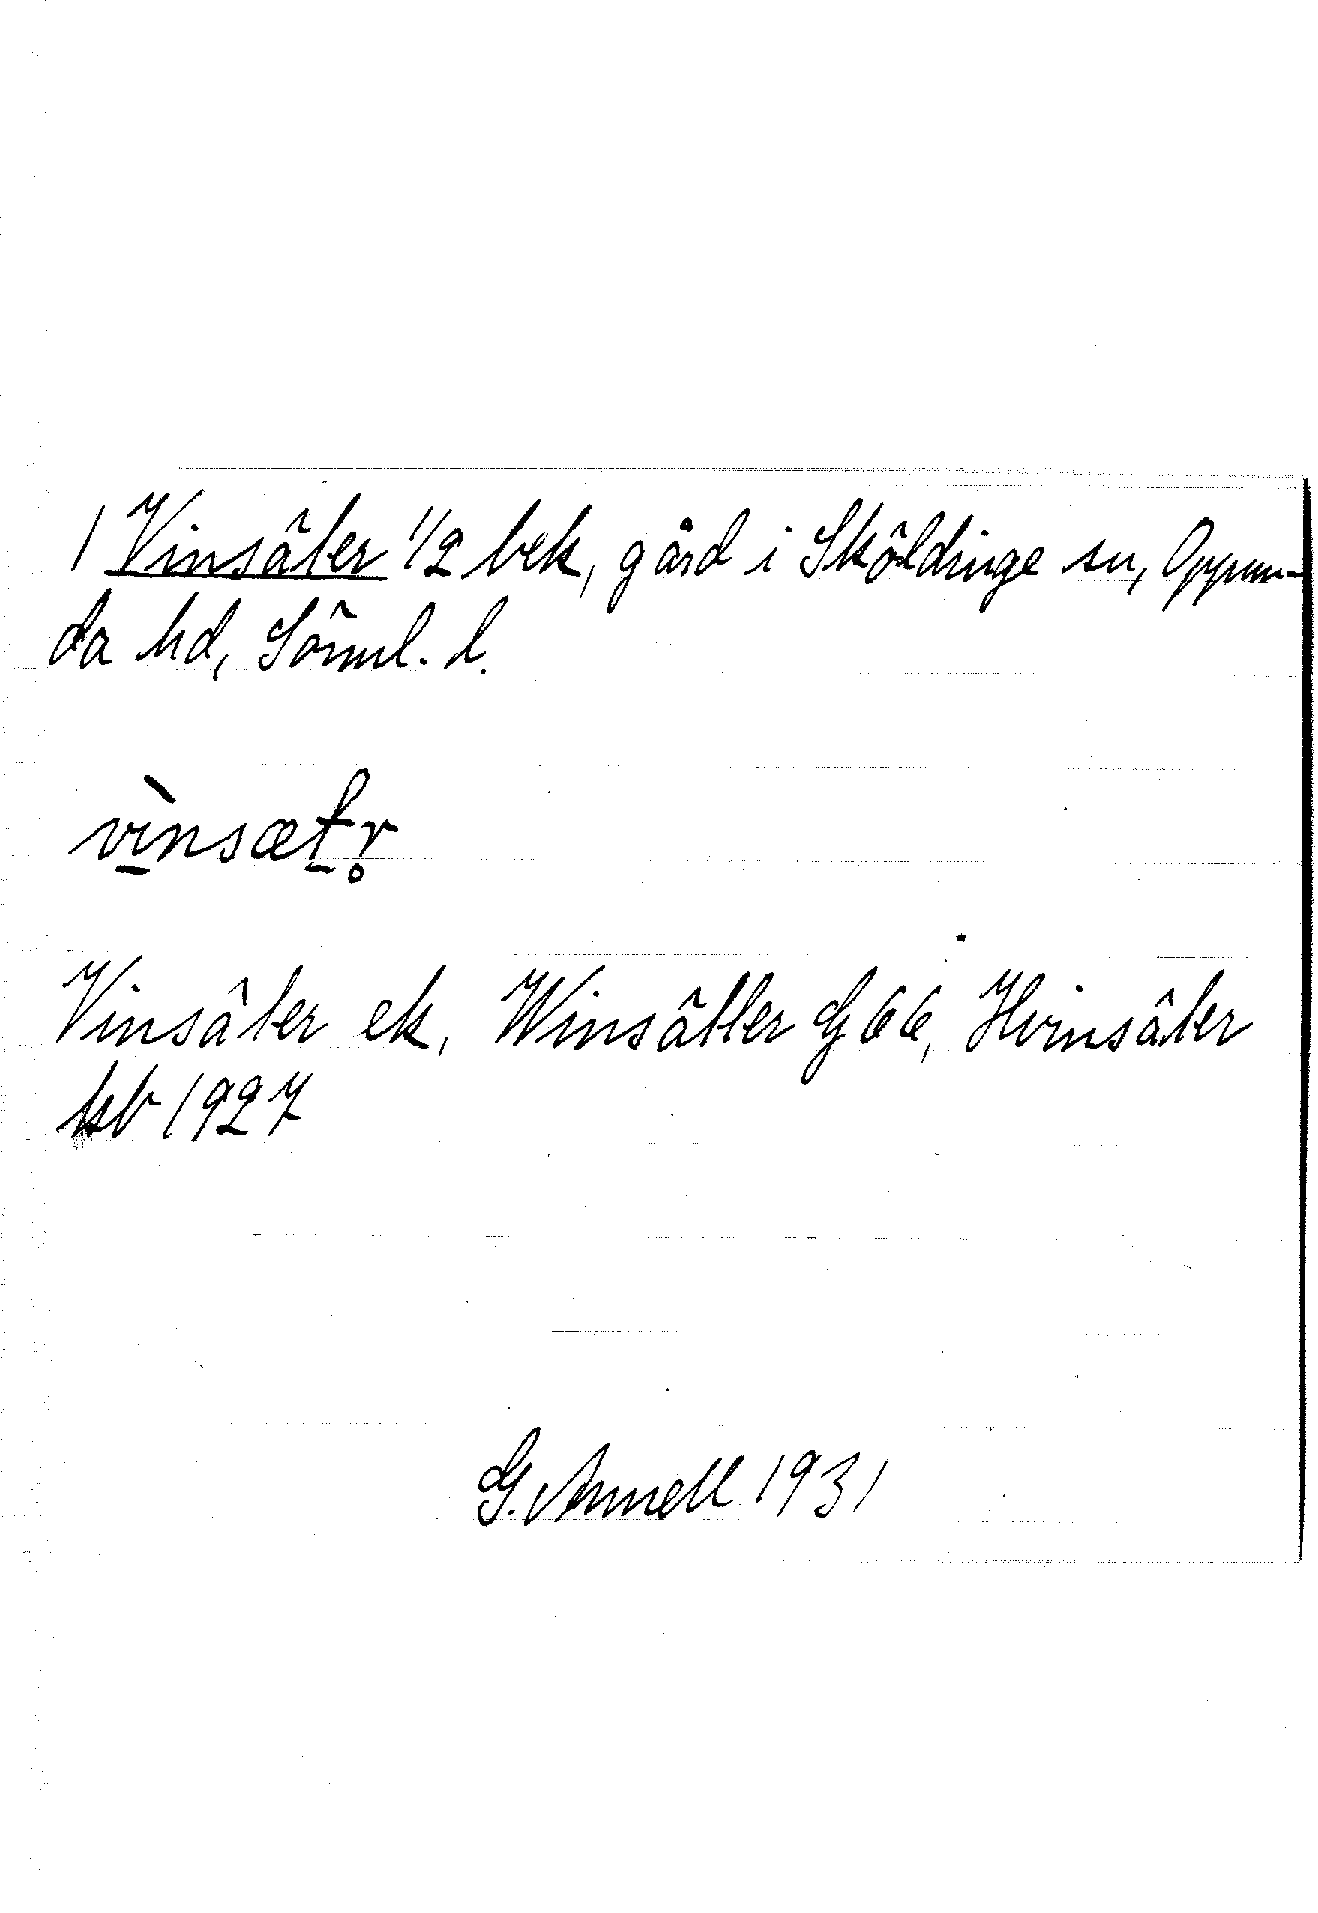 1 Vinsäter 1/2 bek, gård i Sköldinge sn, Oppun-
da hd, Sörml. l.
vı̀nsætr̥
Vinsäter ek, Winsätter G66, Hvinsäter
kb 1927
G. Annell 1931